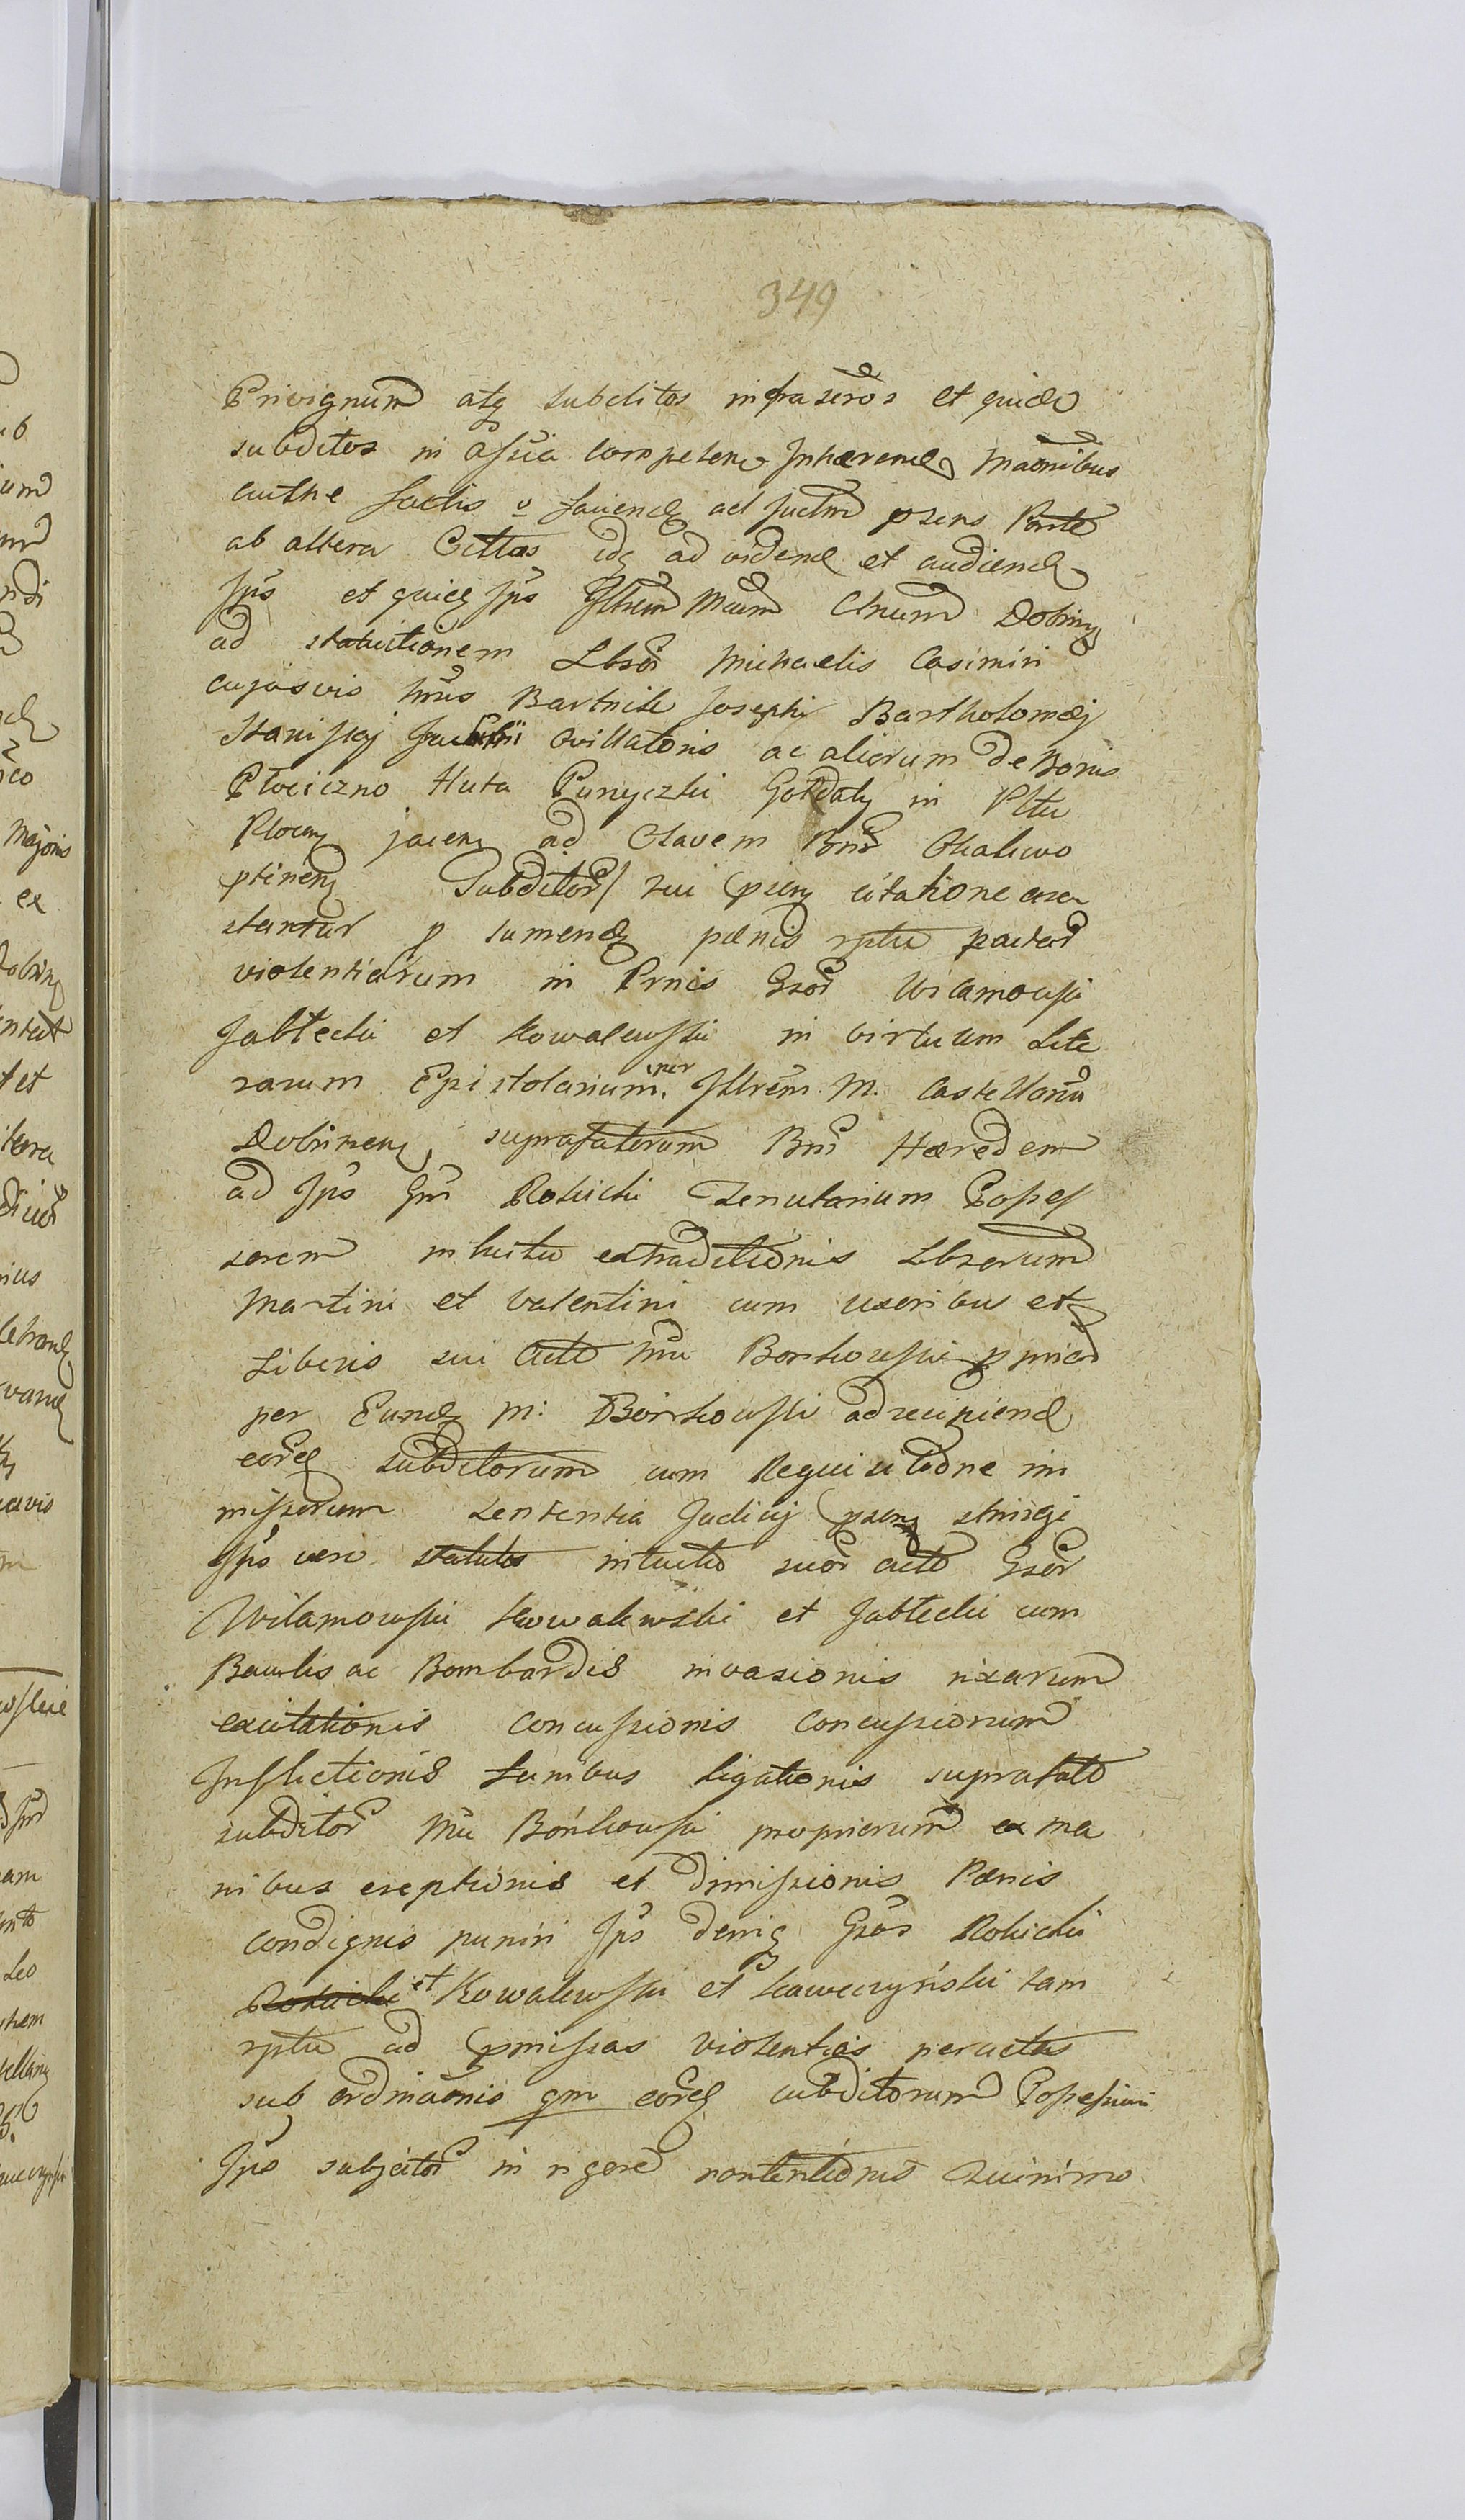 349
Privignum atq subditos infrascros et quidē
subditos in assia competen Inhærend Maōnibus
authne factis v faciend ad Juctm pzens Parte
ab altera Cittos idq ad videnđ et audienđ
Jps et quidq Jps Jllrem Mcum Cnum Dobrinę
ad statuitionem Lbsor Michaelis Casimiri
cujusvis nnis Bartnik Josephi Bartholomæj
Stanislaj ovillatoris ac aliorum de Bonis
Płociczno Huta Punyczki Gołdaty in Pltu
Ploceń jacen ad Clavem Bnor Okalewo
ptinenę Subditor/ sui psenę citatione ares
stantur p sumendę pœnis rptu pactar
violentiarum in Prnis Gsor Wilamowsci
Jabłecki et Kowalewski in virtuum Lite
rarum Epistolarium per Jllrem M. Castellanu
Dobrinenę suprafatorum Bnī Hæredem
ad Jps Gni Rokicki Tenutarium Posses
sorem intuitu extraditionis Lbsorum
Martini et Valentini cum uxoribus et
Liberis sui Acto Mci Borkowski pmiss
per Eundę M: Borkowski ad recipiendę
eordę subditorum cum Requisitione im
missorum Sententia Judicij psenę stringi
Jps vero statutis intuitu suor acto Gsor
Wilamowski Kowalewski et Jabłecki cum
Baculis ac Bombardis invasionis rixarum
excitationis concussionis concussiorum
Inflictionis funibus ligationis suprafato
subditor Mci Borkowski propriorum ex ma
nibus ereptionis et dimissionis Pœnis
condignis puniri Jps deniq Gsos Rokicki
et Kowalewski et Kaweczyński tam
rptu ad pmissas violentias peractas
sub ordinaōnis qm eordę subditorum Possessioni
Jps subjector in rigore nontentionis quinimo